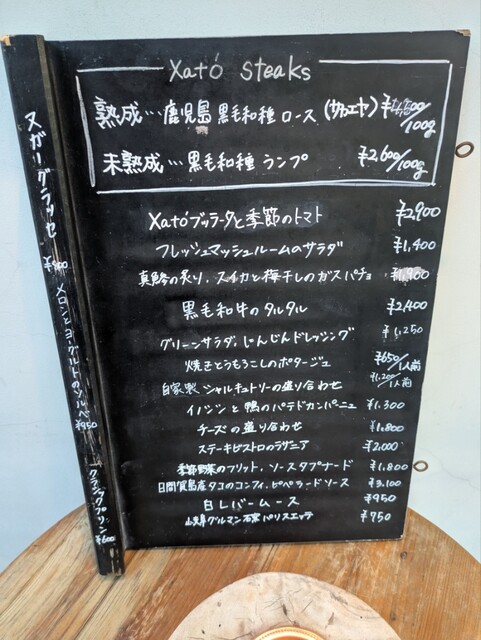 Xató Steaks
熟成…鹿児島 黒毛和種 ロース (サカエヤ) /100g
未熟成…黒毛和種 ランプ ¥2,600/100g
Xatóブッラータと季節のトマト ¥2,900
フレッシュマッシュルームのサラダ ¥1,400
真鯵の炙り、スイカと梅干しのガスパチョ ¥1,900
黒毛和牛のタルタル ¥2,400
グリーンサラダ、にんじんドレッシング ¥1,250
焼きとうもろこしのポタージュ ¥650/1人前
自家製 シャルキュトリーの盛り合わせ ¥1,200/1人前
イノシシと鴨のパテドカンパーニュ ¥1,300
チーズの盛り合わせ ¥1,800
ステーキビストロのラザニア ¥2,000
季節野菜のフリット、ソースタプナード ¥1,800
日間賀島産タコのコンフィ、ピペラードソース ¥3,100
白レバームース ¥950
グルマン パリスエッテ ¥750
ヌガーグラッセ ¥900
メロンとヨーグルトのソルベ ¥950
クラシックプリン ¥600